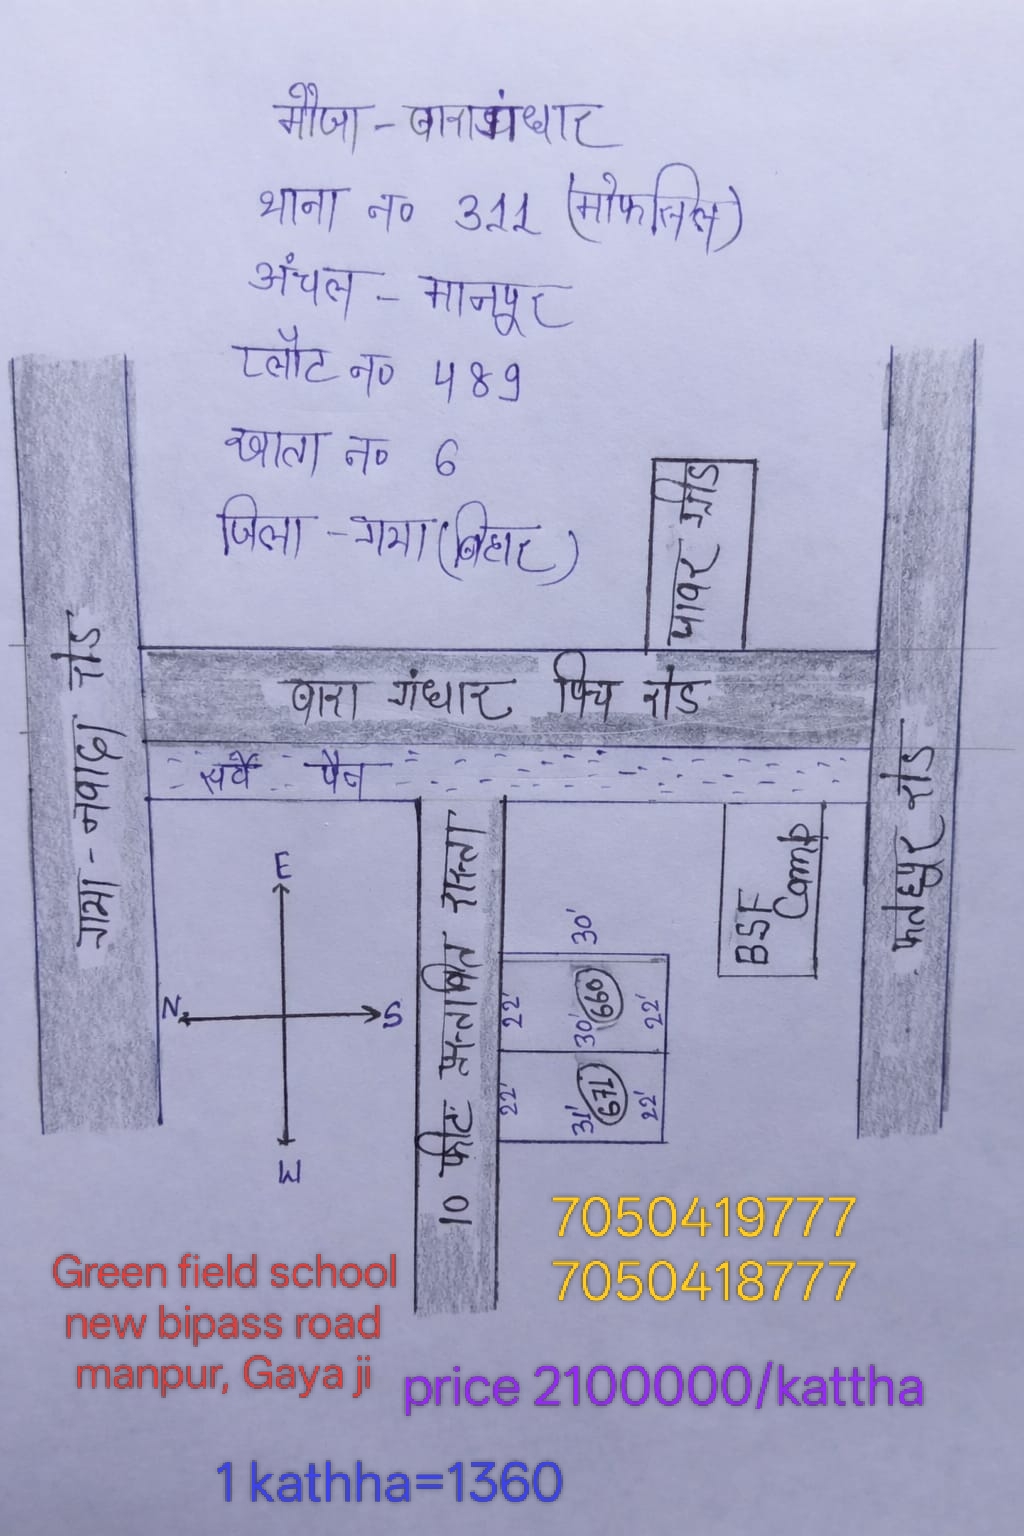 मौजा - बारागंधार
थाना न० 311 (मोफसिल)
अंचल - मानपुर
प्लौट न० 489
खाता न० 6
जिला - गया (बिहार)
पावर ग्रीड
गया - नवादा रोड
बारा गंधार पिच रोड
सर्वे पैन
फतहपुर रोड
BSF
Camp
E
N
S
W
10 फीट प्रस्तावित रास्ता
30'
22'
30'
660
22'
22'
31'
671
22'
7050419777
7050418777
Green field school
new bipass road
manpur, Gaya ji
price 2100000/kattha
1 kathha=1360